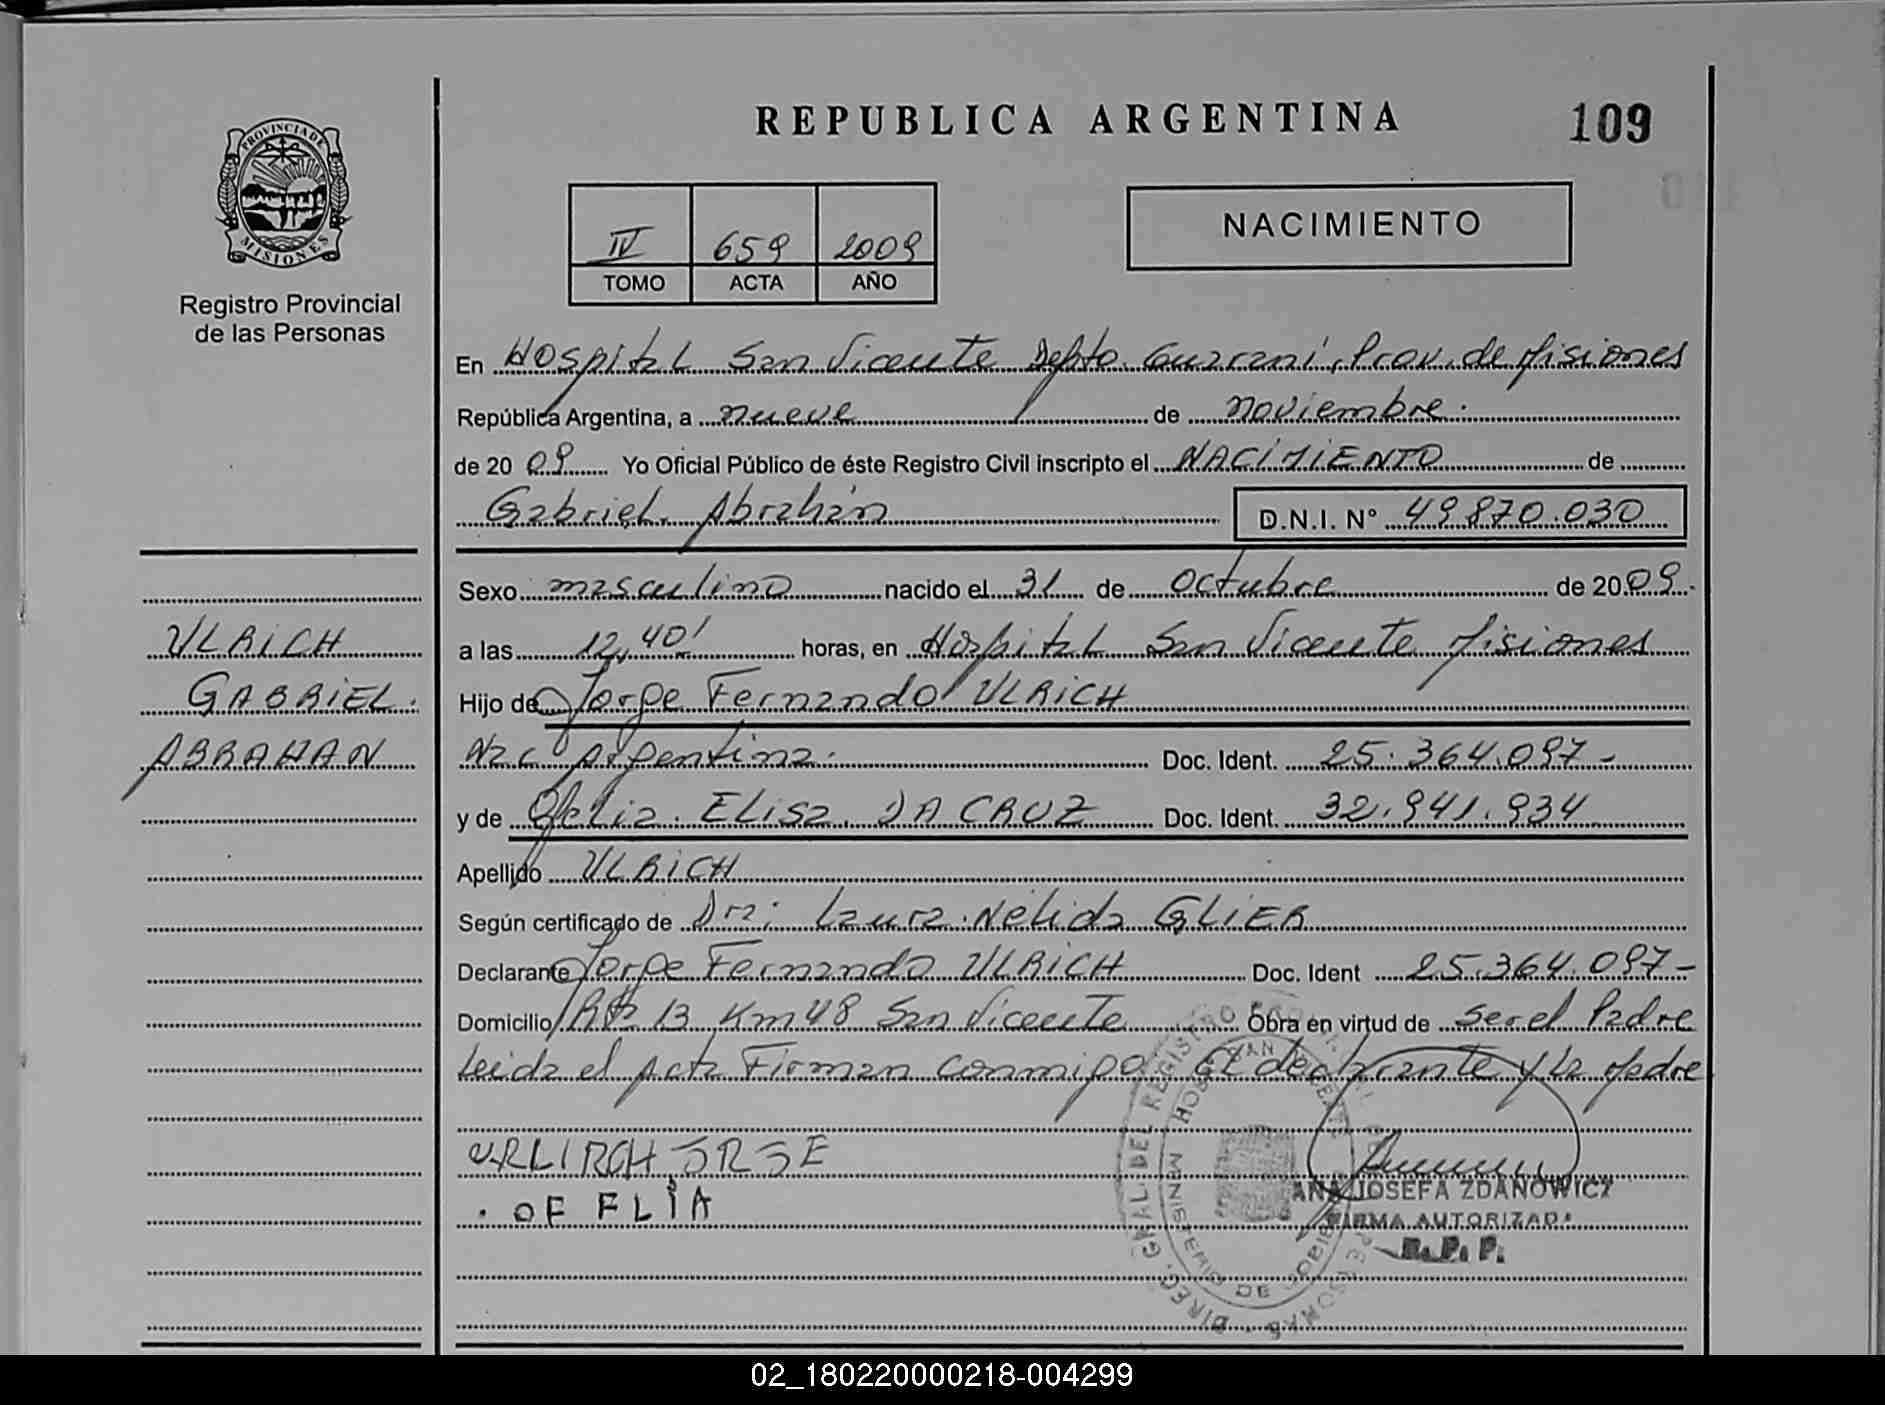 REPUBLICA ARGENTINA
109
PROVINCIA DE
MISIONES
Registro Provincial
de las Personas
IV 659 2009
TOMO ACTA AÑO
NACIMIENTO
En Hospital San Vicente Depto. Guarani, Prov. de Misiones
República Argentina, a nueve de noviembre.
de 20 09 Yo Oficial Público de éste Registro Civil inscripto el NACIMIENTO de
Gabriel Abrahán
D.N.I. N° 49.870.030
Sexo masculino nacido el 31 de Octubre de 2009.-
a las 12,40' horas, en Hospital San Vicente Misiones
Hijo de Jorge Fernando ULRICH
Nac Argentina. Doc. Ident. 25.364.097-
y de Ofelia Elisa DA CRUZ Doc. Ident. 32.941.934
Apellido ULRICH
Según certificado de Dra: Laura Nélida GLIER
Declarante Jorge Fernando ULRICH Doc. Ident 25.364.097-
Domicilio 13 Km 48 San Vicente Obra en virtud de ser el Padre
Leida el Acta Firman conmigo el declarante y la Madre
ULRICH
GABRIEL.
ABRAHAN
URLIRCH JRJE
. OF FLIA
ANA JOSEFA ZDANOWICZ
FIRMA AUTORIZADA
R. P. P.
DIREC. GRAL. DEL REGISTRO PERSONAS
HOSP. SAN VICENTE
MINISTERIO DE
02_180220000218-004299